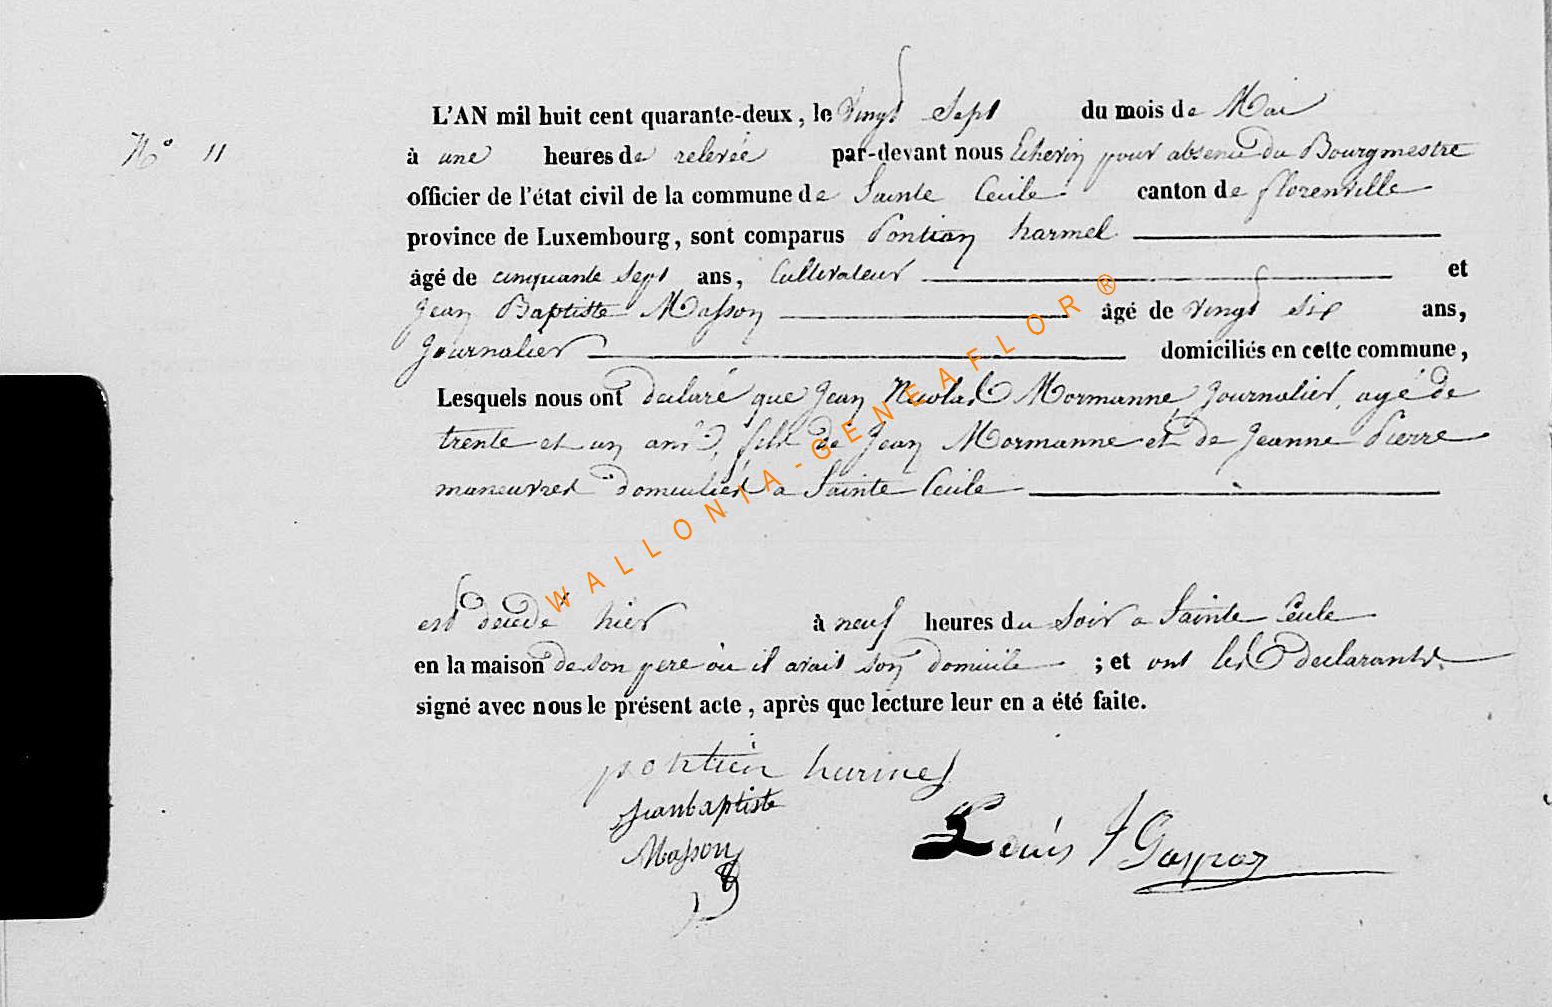 N° 11
L'AN mil huit cent quarante-deux, le Vingt Sept du mois de Mai
à une heures de relevée par-devant nous Echevin pour absence du Bourgmestre
officier de l'état civil de la commune de Sainte Cecile canton de florenville
province de Luxembourg, sont comparus Pontian harmel
âgé de cinquante Sept ans, Cultivateur et
Jean Baptiste Masson âgé de Vingt Six ans,
Journalier domiciliés en cette commune,
Lesquels nous ont declaré que Jean Nicolas Mormanne Journalier, agé de
trente et un ans, fils de Jean Mormanne et de Jeanne Pierre
maneuvres domiciliés a Sainte Cecile
est decedé hier à neuf heures du Soir a Sainte Cecile
en la maison de son pere ou il avait son domicile ; et ont les declarants
signé avec nous le présent acte, après que lecture leur en a été faite.
jeanbaptiste
Masson
Louis J Gaspar
WALLONIA-GENEAFLOR®